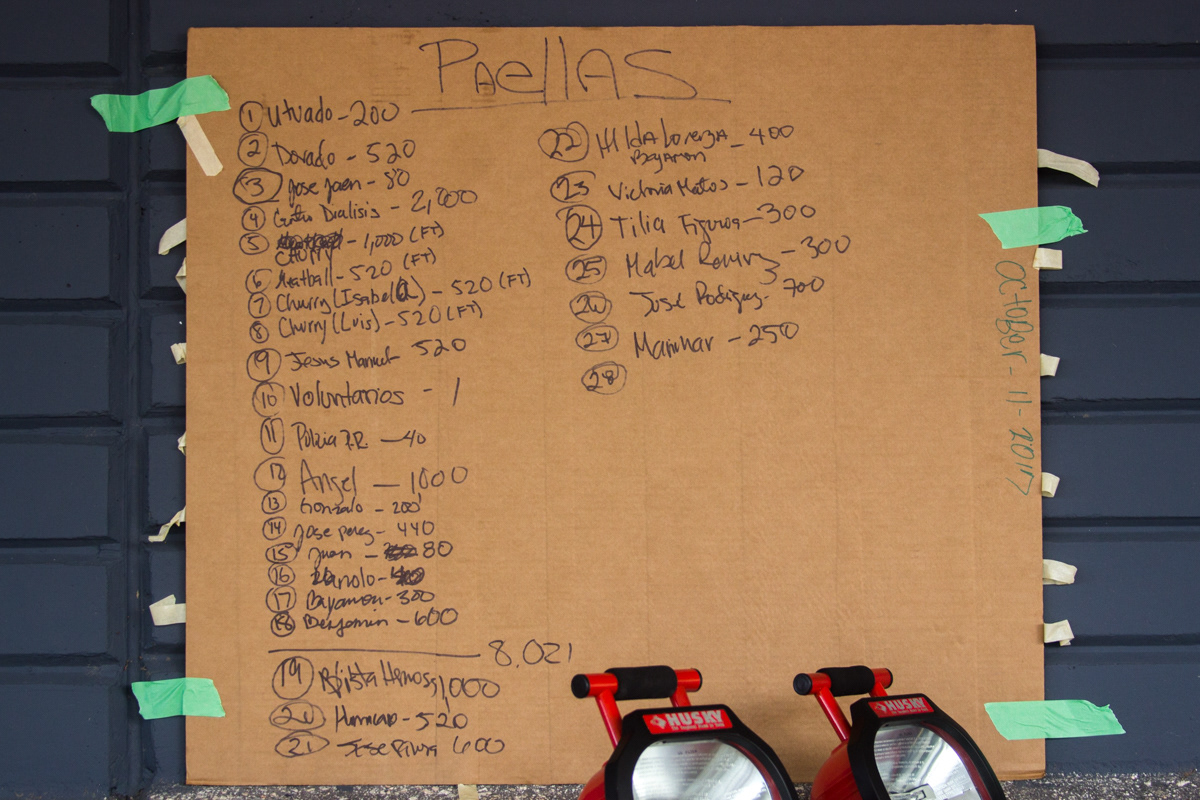 PAellAS
① Utuado - 200
② Dorado - 520
③ Jose Jaen - 80
④ Centro Dialisis - 2,000
⑤ CHURRY - 1,000 (FT)
⑥ Meatball - 520 (FT)
⑦ Churry (Isabela) - 520 (FT)
⑧ Churry (Luis) - 520 (FT)
⑨ Jesus Manuel 520
⑩ Voluntarios - 1
⑪ Policia P.R. - 40
⑫ Angel - 1000
⑬ Gonzalo - 200
⑭ Jose perez - 440
⑮ Juan - 80
⑯ Manolo -
⑰ Bayamon - 300
⑱ Benjamin - 600
8.021
⑲ 1,000
⑳ - 520
㉑ Jose 600
㉒ HIldA Lorenza - 400
Bayamon
㉓ Victoria Matos - 120
㉔ Tilia Figueroa - 300
㉕ Mabel Ramirez - 300
㉖ José Rodriguez - 700
㉗ - 250
㉘
OCTOBER - 11 - 2017
HUSKY
HUSKY